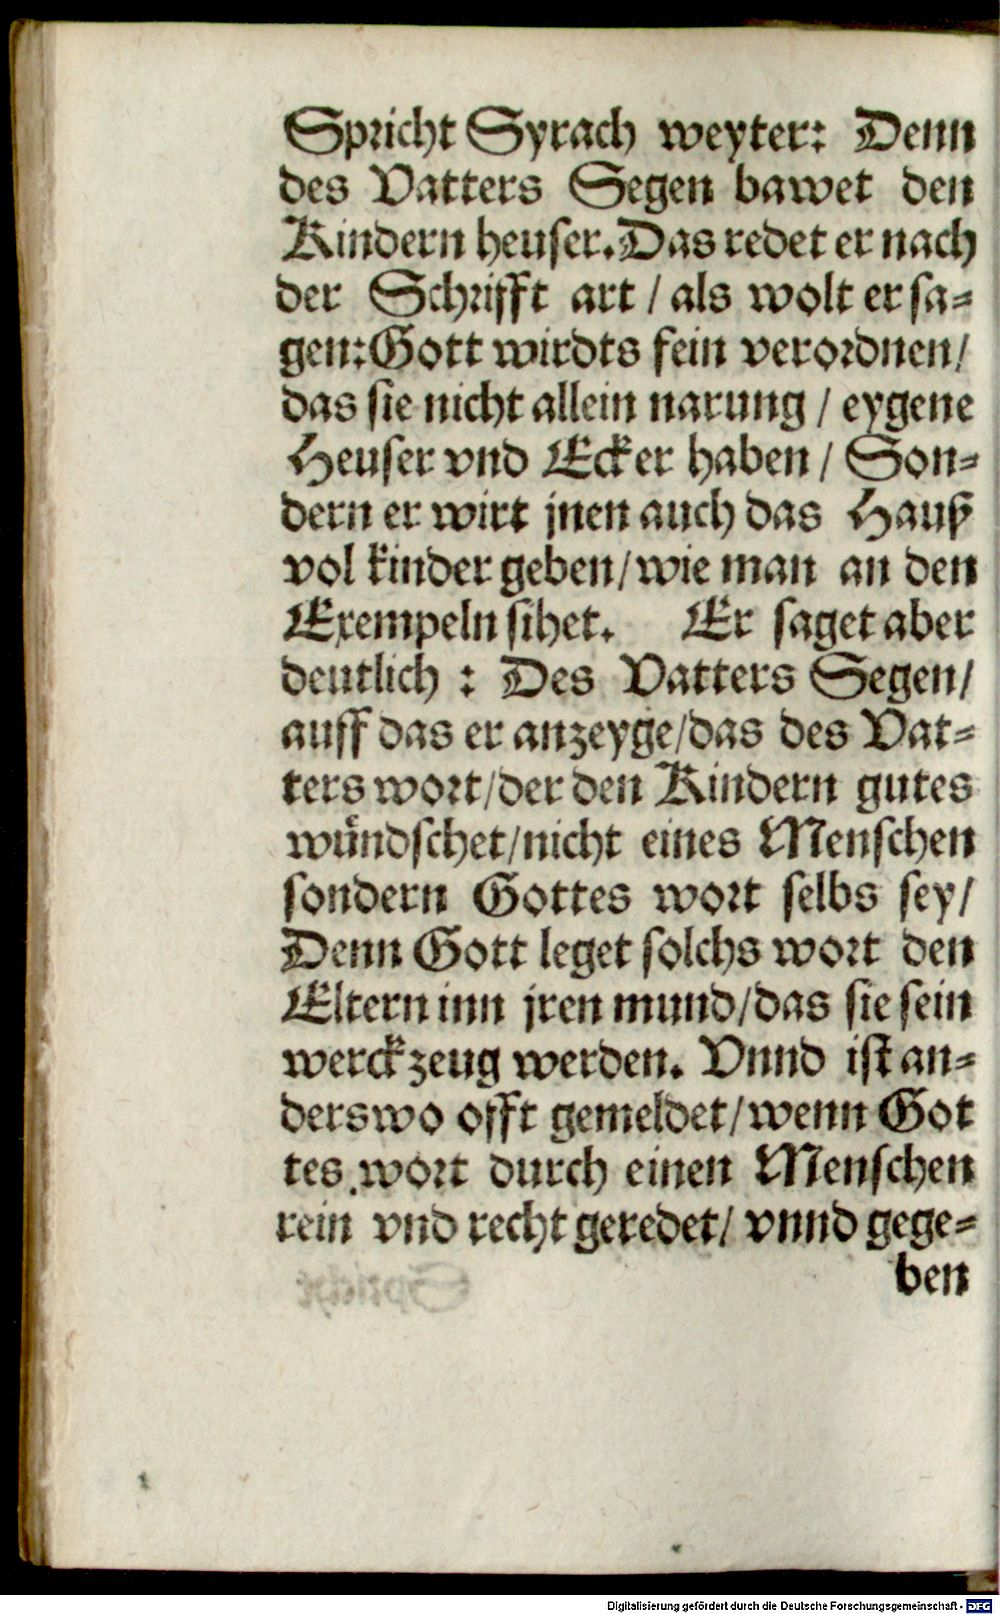 Spricht Syrach weyter: Denn
des Vatters Segen bawet den
Kindern heuser. Das redet er nach
der Schrifft art / als wolt er sa-
gen: Gott wirdts fein verordnen /
das sie nicht allein narung / eygene
Heuser vnd Ecker haben / Son-
dern er wirt jnen auch das Hauß
vol kinder geben / wie man an den
Exempeln sihet. Er saget aber
deutlich : Des Vatters Segen /
auff das er anzeyge / das des Vat-
ters wort / der den Kindern gutes
wündschet / nicht eines Menschen
sondern Gottes wort selbs sey /
Denn Gott leget solchs wort den
Eltern inn jren mund / das sie sein
werckzeug werden. Vnnd ist an-
derswo offt gemeldet / wenn Got
tes wort durch einen Menschen
rein vnd recht geredet / vnnd gege-
ben
Digitalisierung gefördert durch die Deutsche Forschungsgemeinschaft - DFG